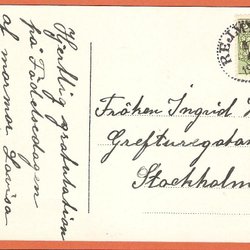 Hjertlig gratulation
på Födelsedagen
af mormor Lovisa
Fröken Ingrid
Grefturegatan
Stockholm
REJM